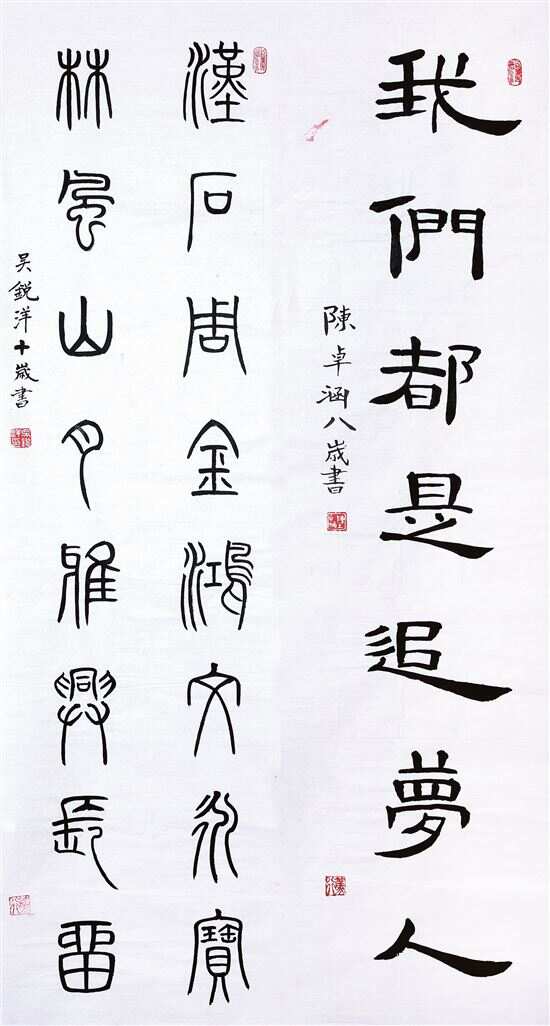 我們都是追夢人
陳卓涵八歲書
漢石周金鴻文永寶
林風山月雅興長留
吴銳洋十歲書